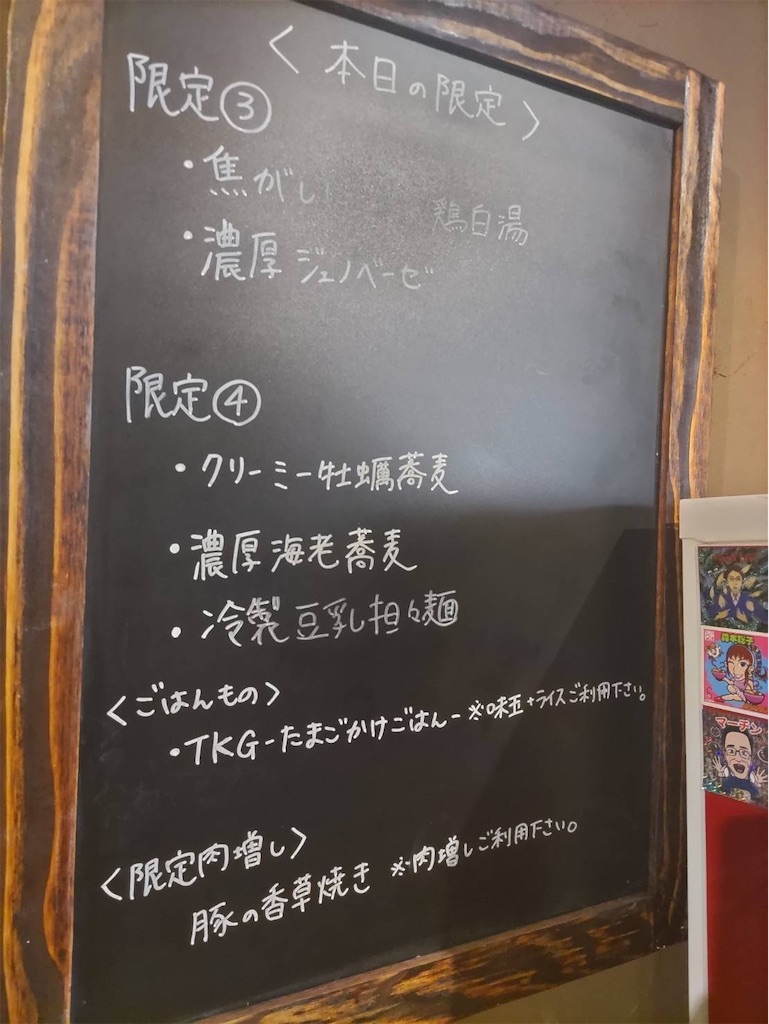 〈本日の限定〉
限定③
・焦がし 鶏白湯
・濃厚ジェノベーゼ
限定④
・クリーミー牡蠣蕎麦
・濃厚海老蕎麦
・冷製豆乳担々麺
〈ごはんもの〉
・TKG-たまごかけごはん- ※味玉+ライスご利用下さい。
〈限定肉増し〉
豚の香草焼き ※肉増しご利用下さい。
マーチン